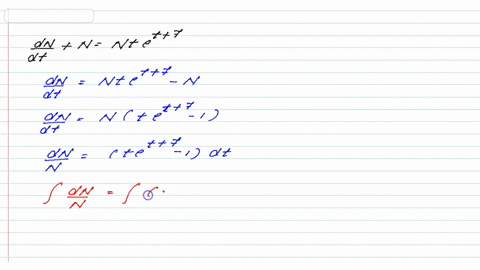 dN/dt + N = N t e^{t+7}
dN/dt = N t e^{t+7} - N
dN/dt = N ( t e^{t+7} - 1 )
dN/N = ( t e^{t+7} - 1 ) dt
∫ dN/N = ∫ (